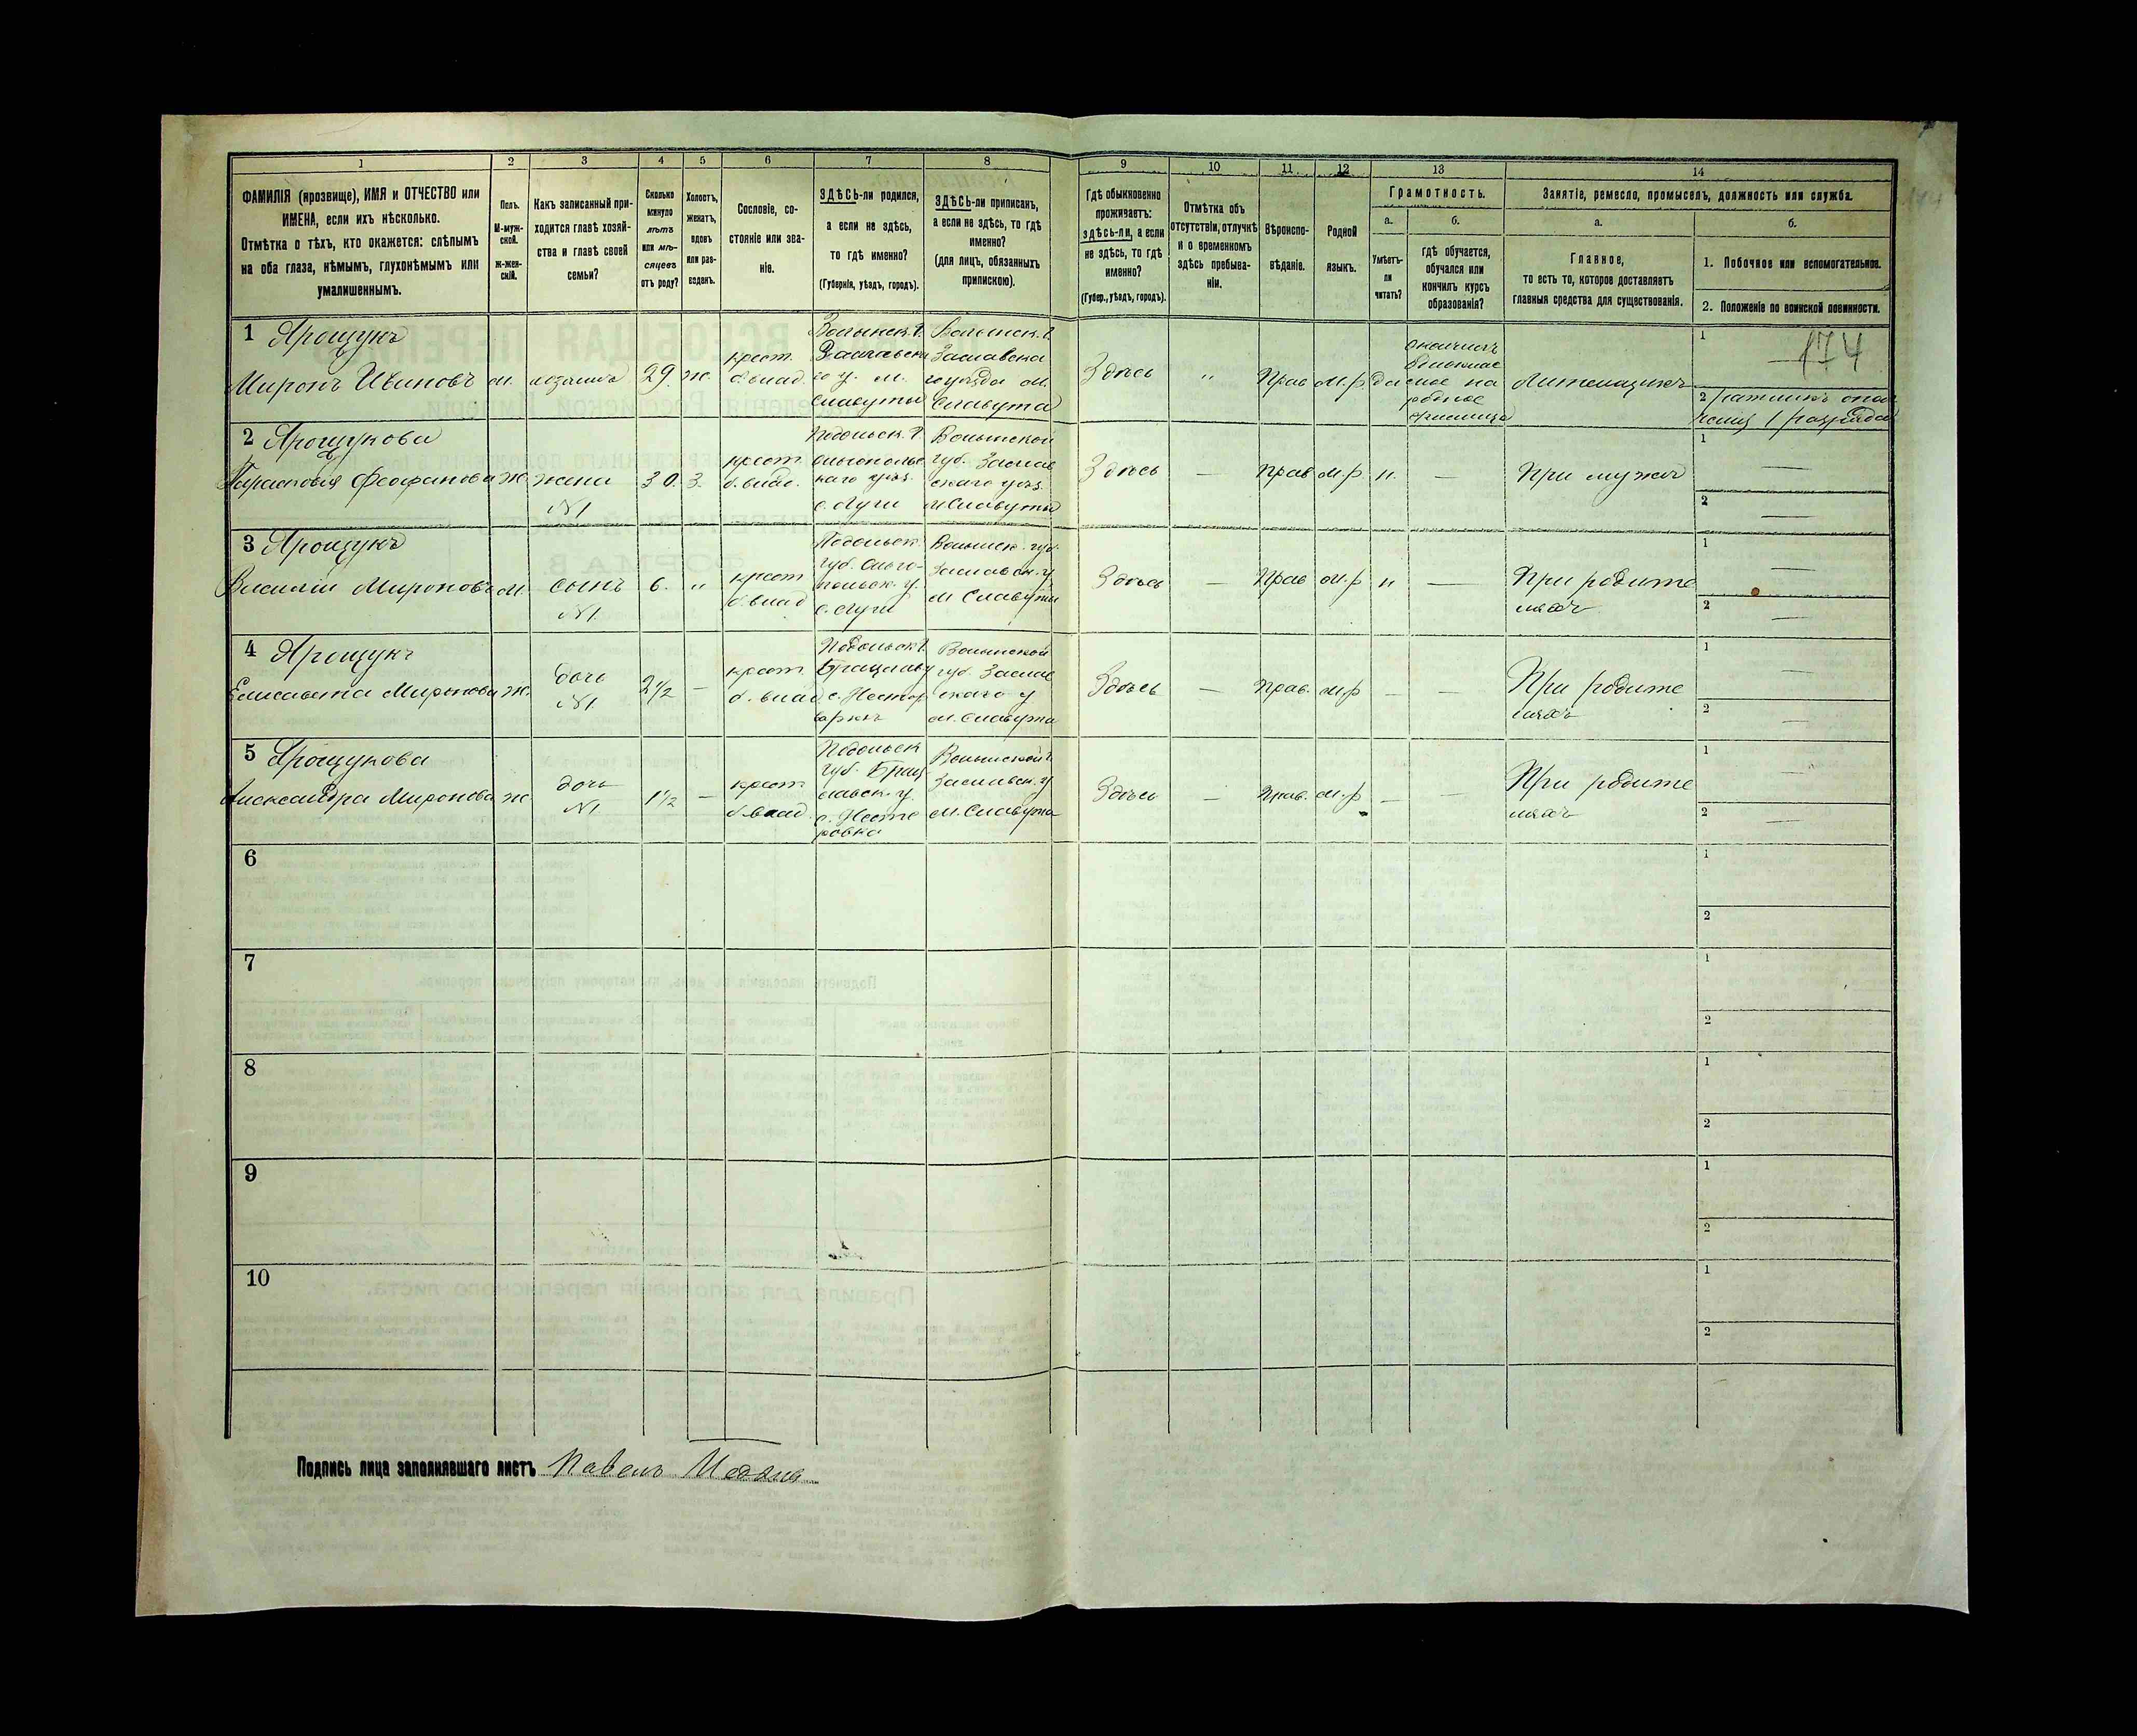 1 2 3 4 5 6 7 8 9 10 11 12 13 14
ФАМИЛІЯ (прозвище), ИМЯ и ОТЧЕСТВО или
ИМЕНА, если ихъ нѣсколько.
Отмѣтка о тѣхъ, кто окажется: слѣпымъ
на оба глаза, нѣмымъ, глухонѣмымъ или
умалишеннымъ.
Полъ.
М-муж-
ской.
Ж-жен-
скій.
Какъ записанный при-
ходится главѣ хозяй-
ства и главѣ своей
семьи?
Сколько
минуло
лѣтъ
или мѣ-
сяцевъ
отъ роду?
Холостъ,
женатъ,
вдовъ
или раз-
веденъ.
Сословіе, со-
стояніе или зва-
ніе.
ЗДѢСЬ-ли родился,
а если не здѣсь,
то гдѣ именно?
(Губернія, уѣздъ, городъ).
ЗДѢСЬ-ли приписанъ,
а если не здѣсь, то гдѣ
именно?
(для лицъ, обязанныхъ
припискою).
Гдѣ обыкновенно
проживаетъ:
здѣсь-ли, а если
не здѣсь, то гдѣ
именно?
(Губер., уѣздъ, городъ).
Отмѣтка объ
отсутствіи, отлучкѣ
и о временномъ
здѣсь пребыва-
ніи.
Вѣроиспо-
вѣданіе.
Родной
языкъ.
Грамотность.
а.
Умѣетъ-
ли
читать?
б.
гдѣ обучается,
обучался или
кончилъ курсъ
образованія?
Занятіе, ремесло, промыселъ, должность или служба.
а.
Главное,
то есть то, которое доставляетъ
главныя средства для существованія.
б.
1. Побочное или вспомогательное.
2. Положеніе по воинской повинности.
174
1 Ярощукъ
Миронъ Ивановъ
м.
хозяинъ
29.
ж.
крест.
б. влад.
Волынск. г.
Заславска
го у. м.
Славуты
Волынск. г.
Заславска
го уѣзда м.
Славута
Здѣсь
"
Прав
м.р
да
1
2 ратникъ опол
ченія 1 разряда
2 Ярощукова
Парасковія Феофанова
ж.
жена
№1
30.
З.
крест.
б. влад.
Подольск. г.
с. Луги
Волынской
губ. Заслав
скаго уѣз.
м Славуты
Здѣсь
—
Прав
м.р
н.
—
При мужѣ
1 —
2 —
3 Ярощукъ
Василій Мироновъ
м.
сынъ
№1.
6.
"
крест
б. влад
Подольск.
с. Луги
Волынск. губ.
Заславск. у
м Славуты
Здѣсь
—
Прав
м.р
н
—
При родите
ляхъ
1 —
2 —
4 Ярощукъ
Елисавета Миронова
ж.
дочь
№1.
2½
—
крест.
б. влад.
Подольск г.
Волынской
губ. Заслав
скаго у
м. Славута
Здѣсь
—
Прав.
м.р
—
—
При родите
ляхъ
1 —
2 —
5 Ярощукова
Александра Миронова
ж.
дочь
№1.
1½
—
крест.
б. влад.
Подольск
губ. Брац
лавск. у.
с. Несте
ровка
Волынской г.
Заславск. у
м. Славута
Здѣсь
—
Прав.
м.р
—
—
При родите
ляхъ
1 —
2 —
6
1
2
7
1
2
8
1
2
9
1
2
10
1
2
Подпись лица заполнявшаго листъ Павелъ